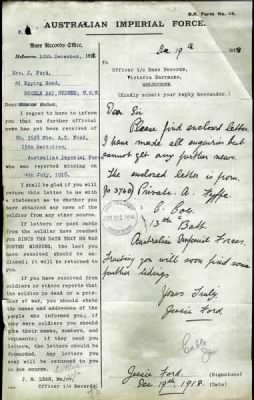 B.R. Form No. 14.
AUSTRALIAN IMPERIAL FORCE.
Base Records Office,
Melbourne, 10th December, 1918
Mrs. J. Ford,
41 Epping Road,
DOUBLE BAY, SYDNEY, N.S.W.
Dear Madam,
I regret to have to inform
you that no further official
news has yet been received of
No. Pte. A.E. Ford,
13th Battalion,
Australian Imperial Force
who was reported missing on
4th July, 1918.
I shall be glad if you will
return this Letter to me with
a statement as to whether you
have obtained any news of the
soldier from any other source.
If letters or post cards
from the soldier have reached
you SINCE THE DATE THAT HE WAS
POSTED MISSING, the last you
have received should be en-
closed; it will be returned to
you.
If you have received from
soldiers or others reports that
the soldier is dead or a pris-
oner of war, you should state
the names and addresses of the
people who informed you, if
they were soldiers you should
give their names, numbers, and
regiments; if they sent you
letters, the letters should be
forwarded. Any letters you
sent will be returned to you
in due course.
J. M. LEAN, Major,
Officer i/c Records.
Dec 19th 1918
To
Officer i/c Base Records,
Victoria Barracks,
MELBOURNE.
(Kindly submit your reply hereunder.)
Dear Sir
Please find enclosed letter
I have made all enquiries but
cannot get any further news.
The enclosed letter is from
No 3740 Private. A. Fyffe
C. Coy.
13th Batt
Australian Imperial Forces.
Trusting you will soon find some
further tidings
Yours Truly
Jessie Ford.
Jessie Ford. (Signature)
Dec. 19th 1918. (Date)